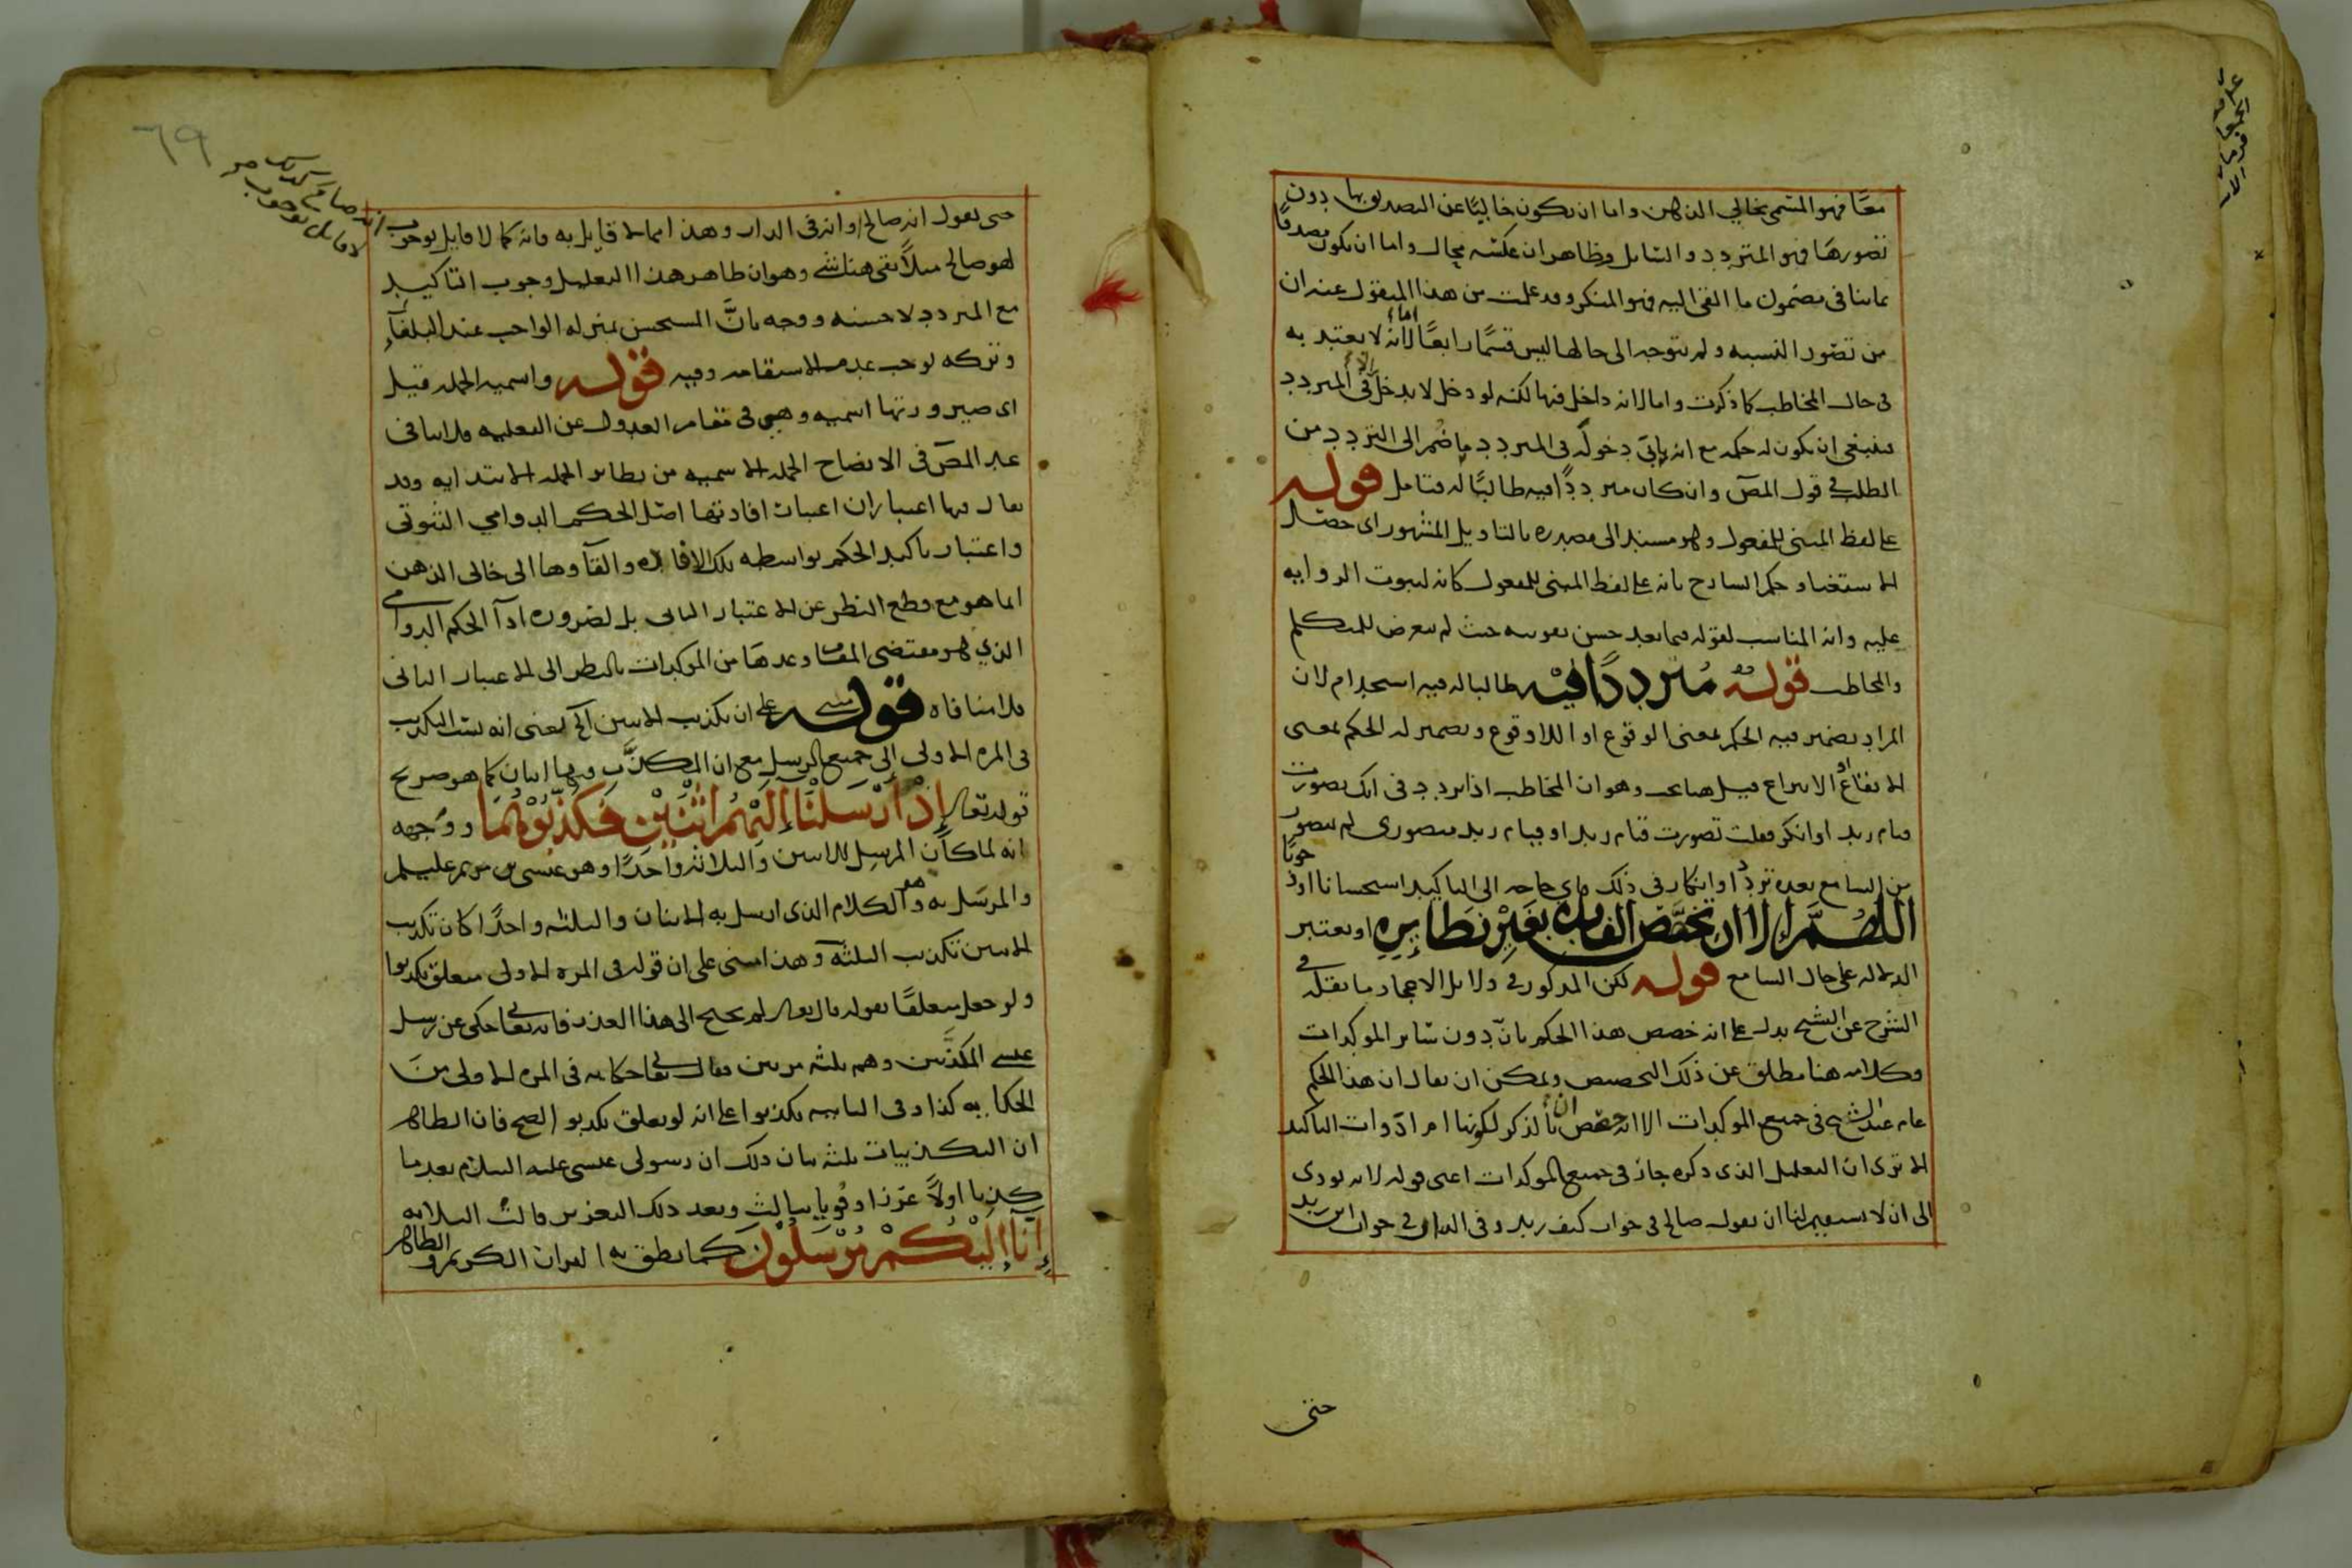 معًا فهو المسمى بخالي الذهن واما ان يكون خاليًا عن التصديق بها دون
تصورها فهو المتردد والسائل وظاهر ان عكسه محال واما ان يكون مصدقًا
بما ينافى مضمون ما القى اليه فهو المنكر وقد علمت من هذا المنقول عنه ان
من تصور النسبه ولم يتوجه الى حالها ليس قسمًا رابعًا اما لانه لا يعتد به
فى حال المخاطب كما ذكرت واما لانه داخل فيها لكنه لو دخل لا يدخل الا فى المتردد
فينبغى ان يكون له حكمه مع انه يابى دخوله فى المتردد ما ضم الى التردد من
الطلب فى قول المص وان كان مترددًا فيه طالبًا له فتامل قوله
على لفظ المبنى للمفعول وهو مسند الى مصدره بالتاويل المشهور اى حصل
الاستغناء وحكم الشارح بانه على لفظ المبنى للمفعول كانه لثبوت الروايه
عليه وانه المناسب لقوله فيما بعد حسن تقويته حيث لم يتعرض للمتكلم
والمخاطب قوله مترددًا فيه طالبا له فيه استخدام لان
المراد بضمير فيه الحكم بمعنى الوقوع او اللا وقوع وبضمير له الحكم بمعنى
الايقاع او الانتزاع قيل هنا بحث وهو ان المخاطب اذا تردد فى انك تصورت
قيام زيد او انكر فقلت تصورت قيام زيد او قيام زيد متصورى لم يتصور
من السامع بعده تردد او انكار فى ذلك فاى حاجه الى التاكيد استحسانا او وجوبًا
اللهم الا ان تخصص القاعده بغير نظايره او يعتبر
الدلاله على حال السامع قوله لكن المذكور فى دلايل الاعجاز ما نقله فى
الشرح عن الشيخ يدل على انه خصص هذا الحكم بان دون سائر الموكدات
وكلامه هنا مطلق عن ذلك التخصيص ويمكن ان يقال ان هذا الحكم
عام عند الشيخ فى جميع الموكدات الا انه خصص ان بالذكر لكونها ام ادوات التاكيد
الا ترى ان التعليل الذى ذكره جاز فى جميع الموكدات اعنى قوله لانه يودى
الى ان لا يستقيم لنا ان نقول صالح فى جواب كيف زيد وفى الدار فى جواب اين زيد
حتى
٦٩
حتى نقول انه صالح وانه فى الدار وهذا مما لا قايل به فانه كما لا قايل بوجوب
لهو صالح مثلا بقى هنا شى وهو ان ظاهر هذا التعليل وجوب التاكيد
مع المتردد لا حسنه ووجه بان المستحسن بمنزله الواجب عند البلغاء
وتركه يوجب عدم الاستقامه وفيه قوله واسميه الجمله قيل
اى صيرورتها اسميه وهى فى مقام العدول عن الفعليه فلا ينافى
عد المص فى الايضاح الجمله الاسميه من نظائر الجمله الابتدائيه وقد
يقال فيها اعتباران اعتبار افادتها اصل الحكم الدوامي الثبوتى
واعتبار تاكيد الحكم بواسطه تلك الافاده والقاوها الى خالى الذهن
انما هو مع قطع النظر عن الاعتبار الثانى بل لضروره ادآ الحكم الدوامي
الذي هو مقتضى المقام وعدها من الموكدات بالنظر الى الاعتبار الثانى
فلا منافاه قوله مبنى على ان تكذيب الاثنين الخ يعنى انه نسب التكذيب
فى المره الاولى الى جميع الرسل مع ان المكذب فيها اثنان كما هو صريح
قوله تعالى إذ أرسلنا إليهم اثنين فكذبوهما ووجهه
انه لما كان المرسل للاثنين والثلاثه واحدًا وهو عيسى بن مريم عليه السلام
والمرسل به وهو الكلام الذى ارسل به الاثنان والثلثه واحدًا كان تكذيب
الاثنين تكذيب الثلثه وهذا مبنى على ان قوله فى المره الاولى متعلق بكذبوا
ولو جعل متعلقًا بقوله قال تعالى لم يحتج الى هذا العذر فانه تعالى حكى عن رسل
عيسى المكذبين وهم ثلثه مرتين فقال تعالى حكايه فى المره الاولى من
الحكايه كذا وفى الثانيه بكذبوا على انه لو تعلق بكذبوا لصح فان الظاهر
ان التكذيبات ثلثه بيان ذلك ان رسولى عيسى عليه السلام بعد ما
كذبا اولاً عززا وقويا بثالث وبعد ذلك التعزيز قالت الثلاثه
إنا إليكم مرسلون كما نطق به القران الكريم والظاهر